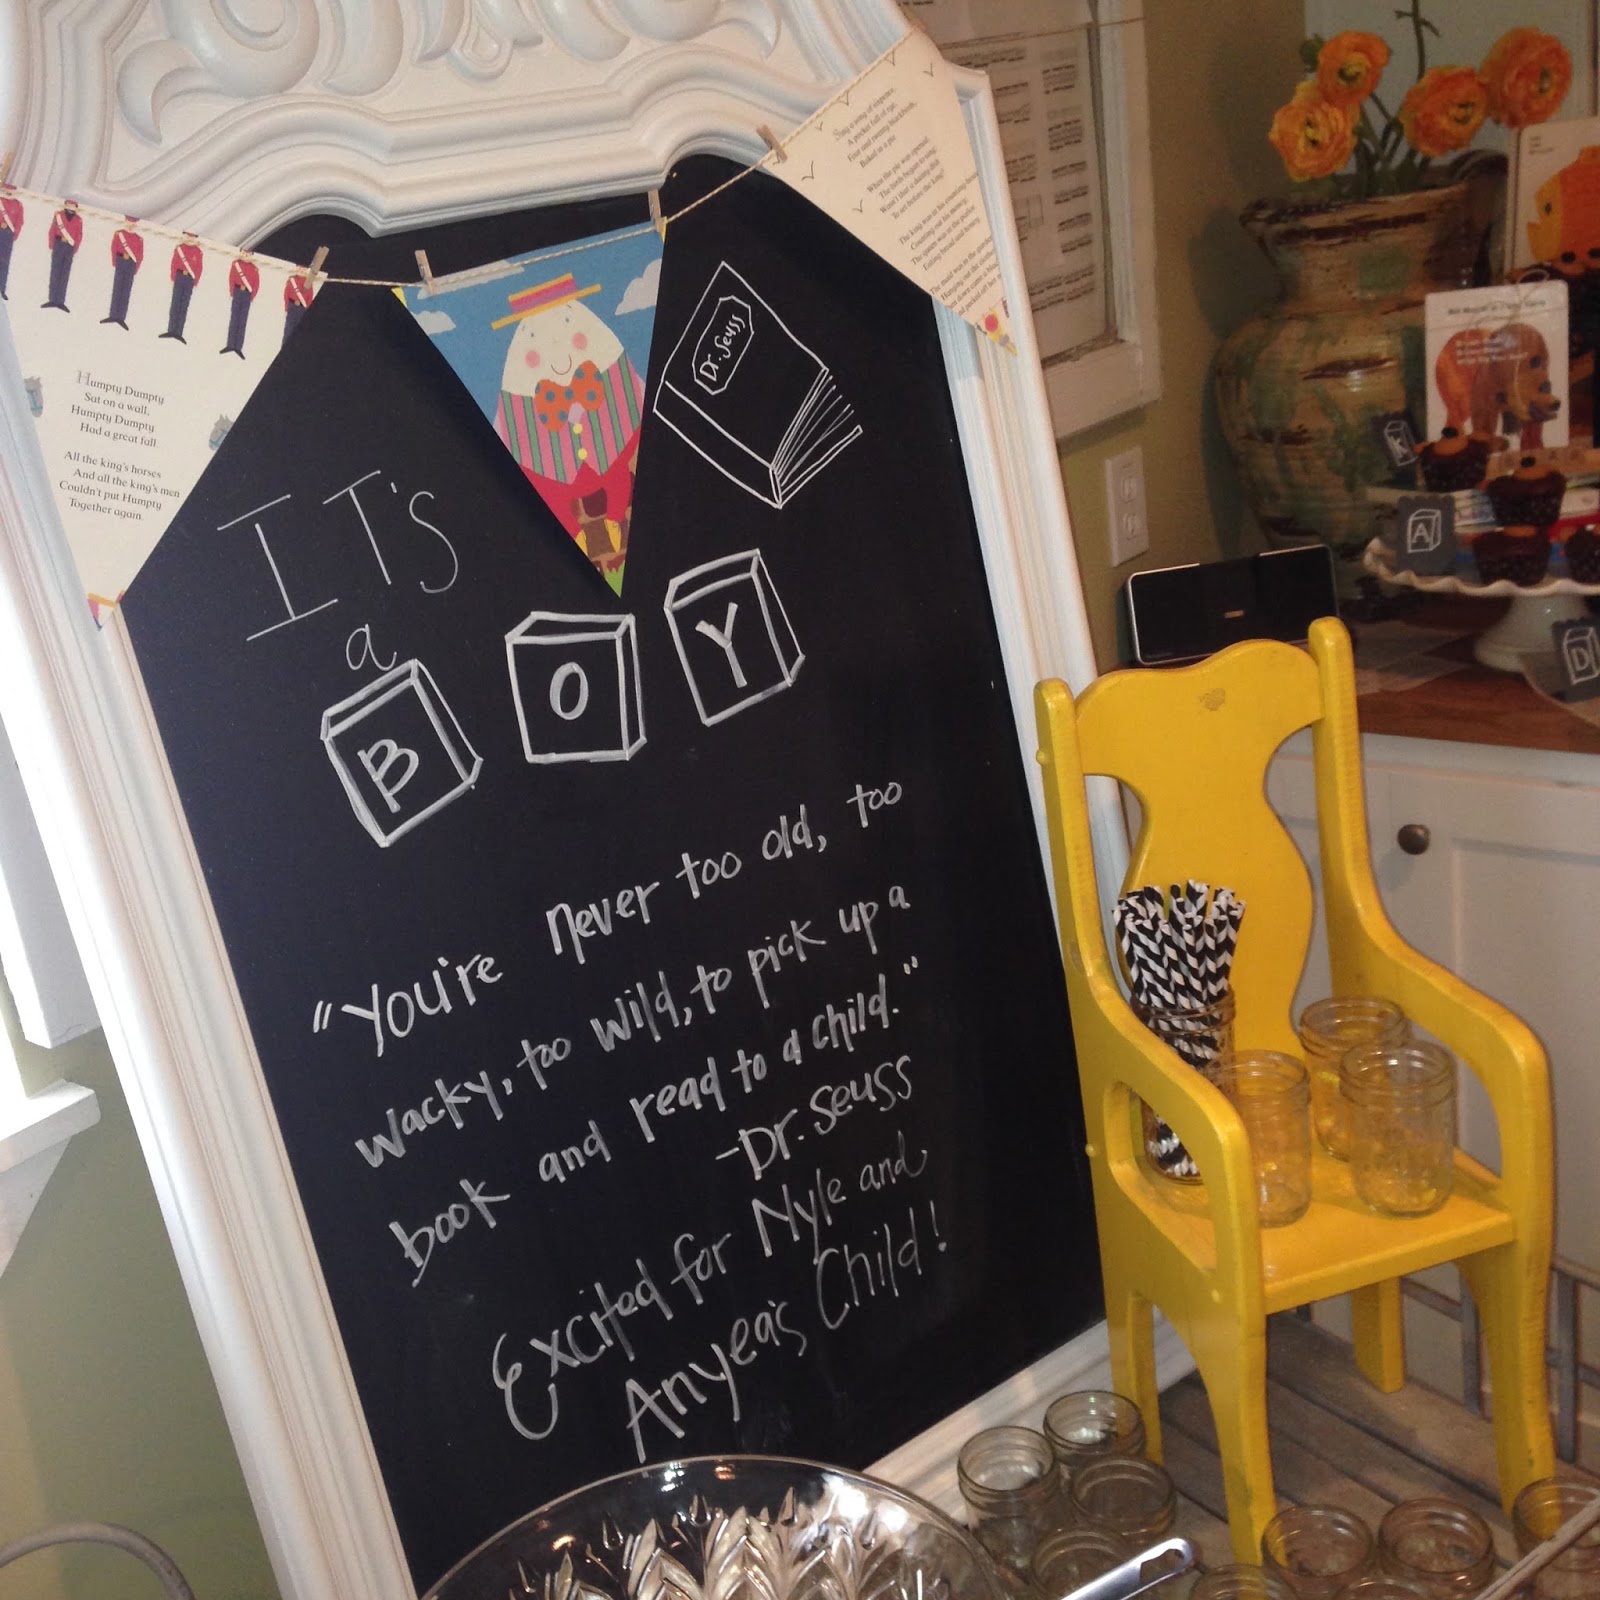 Humpty Dumpty
Sat on a wall,
Humpty Dumpty
Had a great fall.
All the king's horses
And all the king's men
Couldn't put Humpty
Together again.
Sing a song of sixpence,
A pocket full of rye,
Four and twenty blackbirds,
Baked in a pie.
When the pie was opened,
The birds began to sing;
Wasn't that a dainty dish
To set before the king?
The king was in his counting-house
Counting out his money;
The queen was in the parlor
Eating bread and honey.
The maid was in the garden
Hanging out the clothes
Dr. Seuss
IT'S
a
BOY
"You're never too old, too
wacky, too wild, to pick up a
book and read to a child."
-Dr. Seuss
Excited for Nyle and
Anyea's Child!
K
A
D